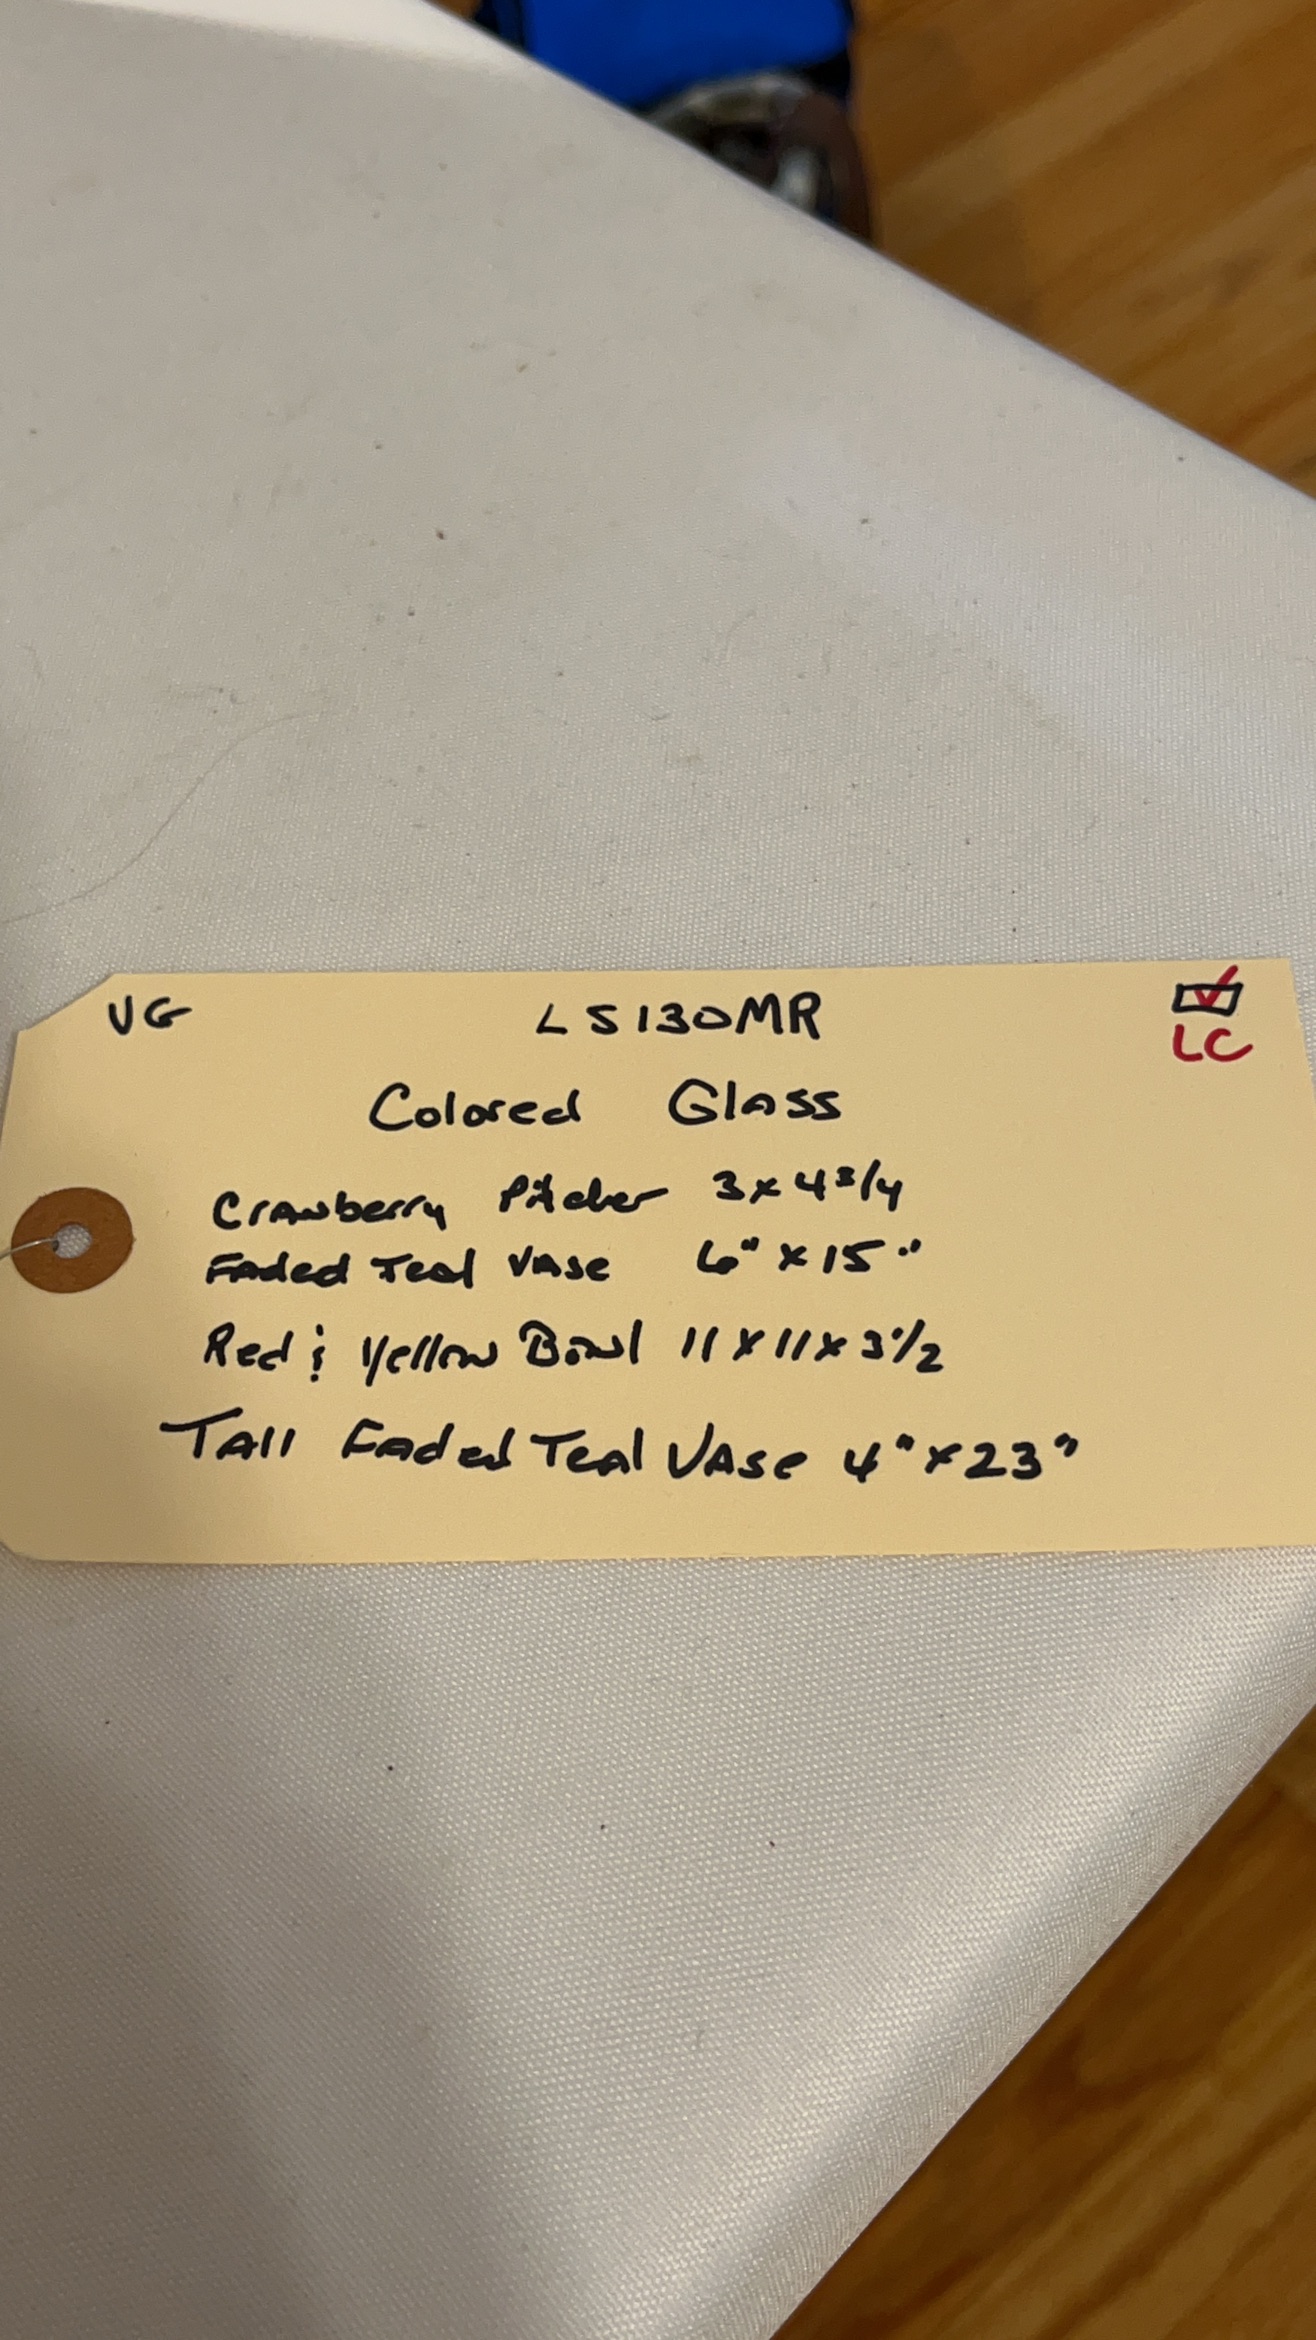 VG LS130MR ☑
LC
Colored Glass
Cranberry Pitcher 3x4 3/4
Faded Teal Vase 6" x 15"
Red & Yellow Bowl 11 x 11 x 3 1/2
Tall Faded Teal Vase 4" x 23"